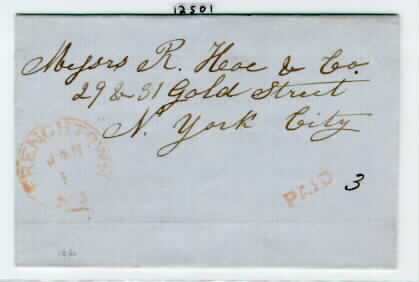 12501
Messrs R. Hoe & Co.
29 & 31 Gold Street
N. York City
FRENCHTOWN
JAN
PAID
3